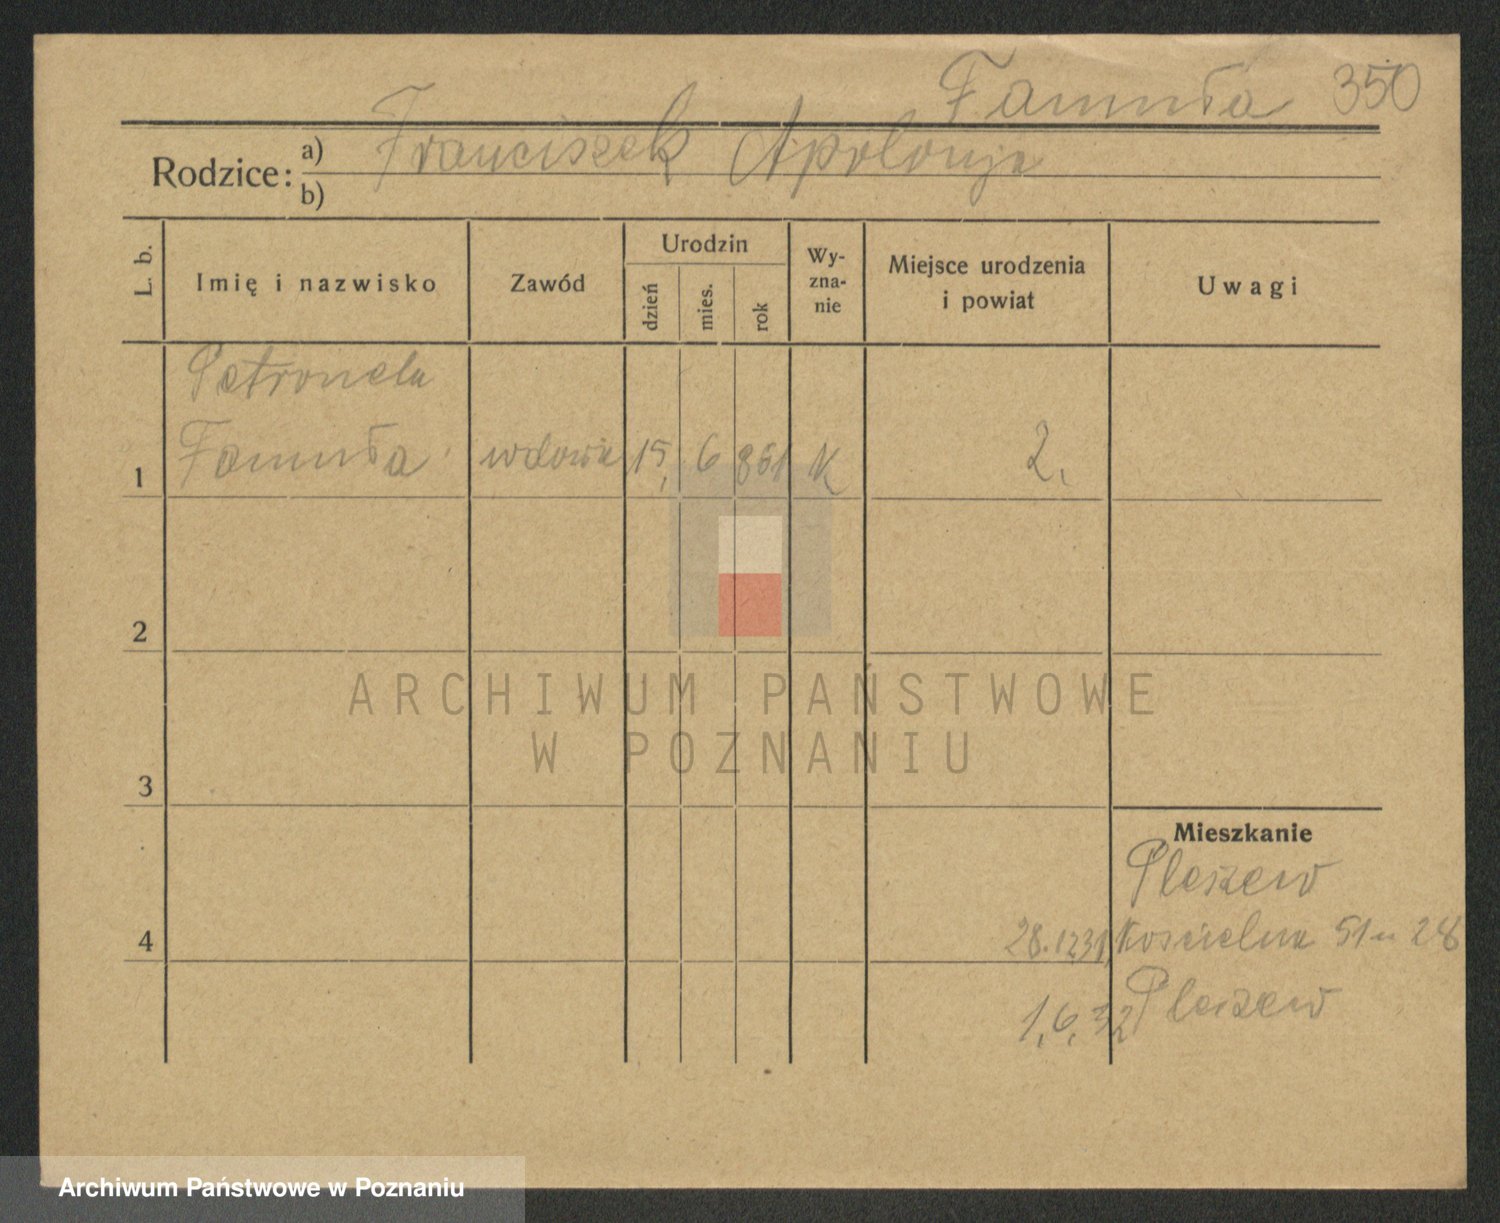 Famuła 350
Rodzice: a) Franciszek Apolonja
b)
L. b. Imię i nazwisko Zawód Urodzin dzień mies. rok Wy-zna-nie Miejsce urodzenia i powiat Uwagi
Petronela
1 Famuła wdowa 15, 6 861 K 2.
2
ARCHIWUM PAŃSTWOWE
W POZNANIU
3
Mieszkanie
Pleszew
4 28.12.31, Kościelna 51 28
1.6.32 Pleszew
Archiwum Państwowe w Poznaniu